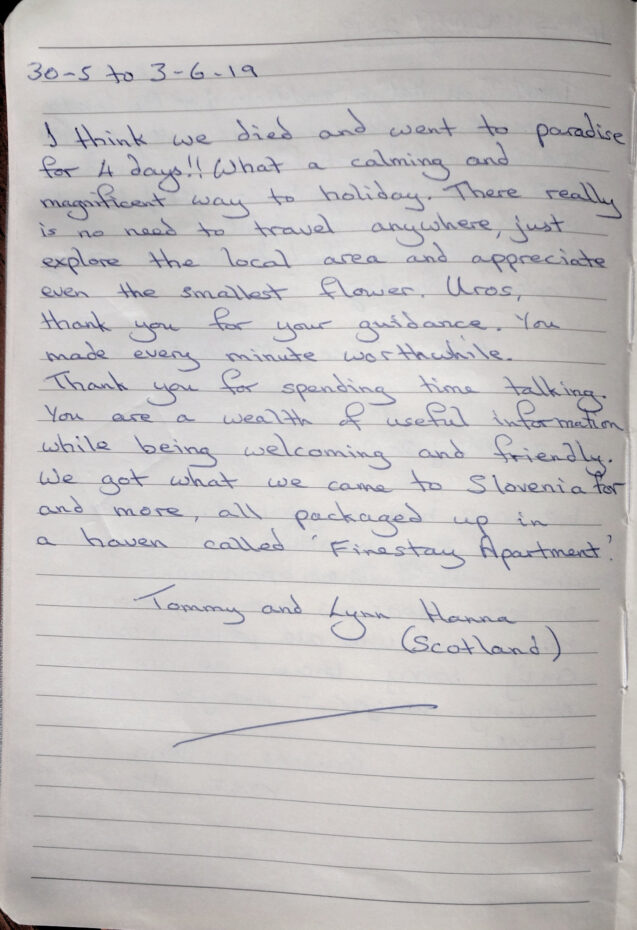 30-5 to 3-6-19
I think we died and went to paradise
for 4 days!! What a calming and
magnificent way to holiday. There really
is no need to travel anywhere, just
explore the local area and appreciate
even the smallest flower. Uros,
thank you for your guidance. You
made every minute worthwhile.
Thank you for spending time talking.
You are a wealth of useful information
while being welcoming and friendly.
We got what we came to Slovenia for
and more, all packaged up in
a haven called 'Finestay Apartment'.
Tommy and Lynn Hanna
(Scotland)